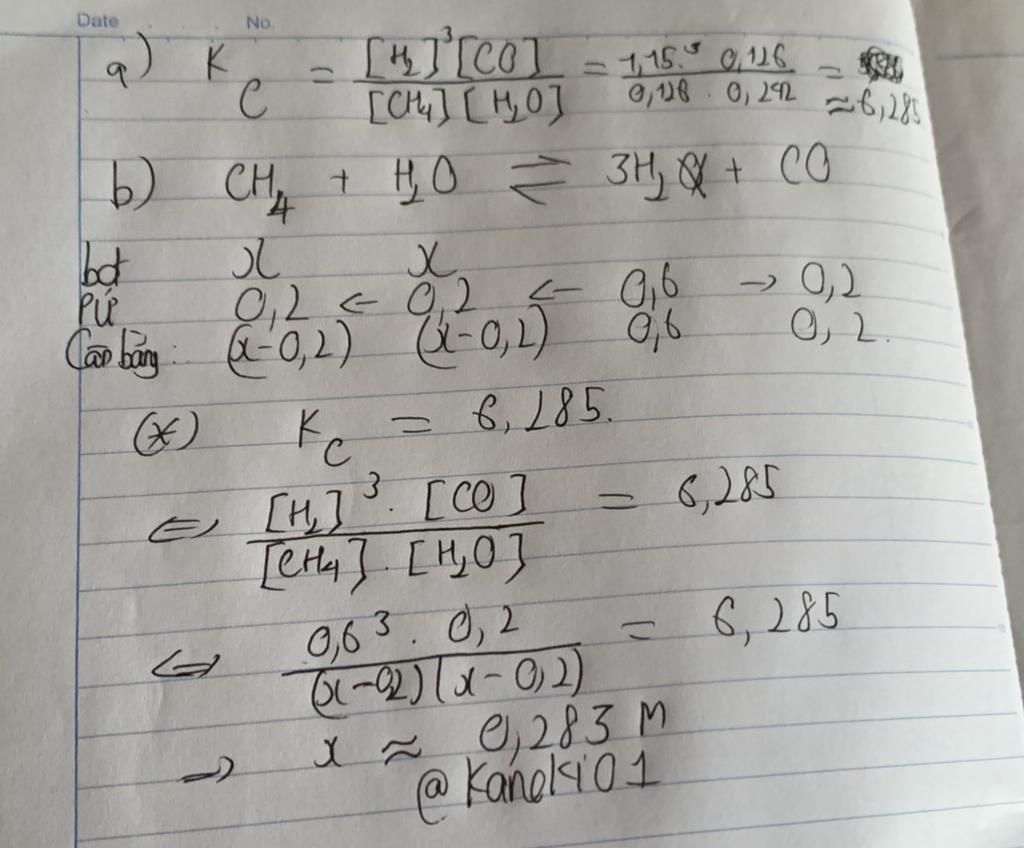 Date No.
a) K_C = [H₂]³[CO] / [CH₄][H₂O] = 1,15.³ 0,126 / 0,128 . 0,242 = ≈ 6,285
b) CH₄ + H₂O ⇌ 3H₂ + CO
bđ x x
PƯ 0,2 ← 0,2 ← 0,6 → 0,2
Cân bằng: (x-0,2) (x-0,2) 0,6 0,2.
(*) K_C = 6,285.
⇔ [H₂]³ . [CO] / [CH₄] . [H₂O] = 6,285
⇔ 0,6³ . 0,2 / (x-0,2)(x-0,2) = 6,285
→ x ≈ 0,283 M
@Kaneki01